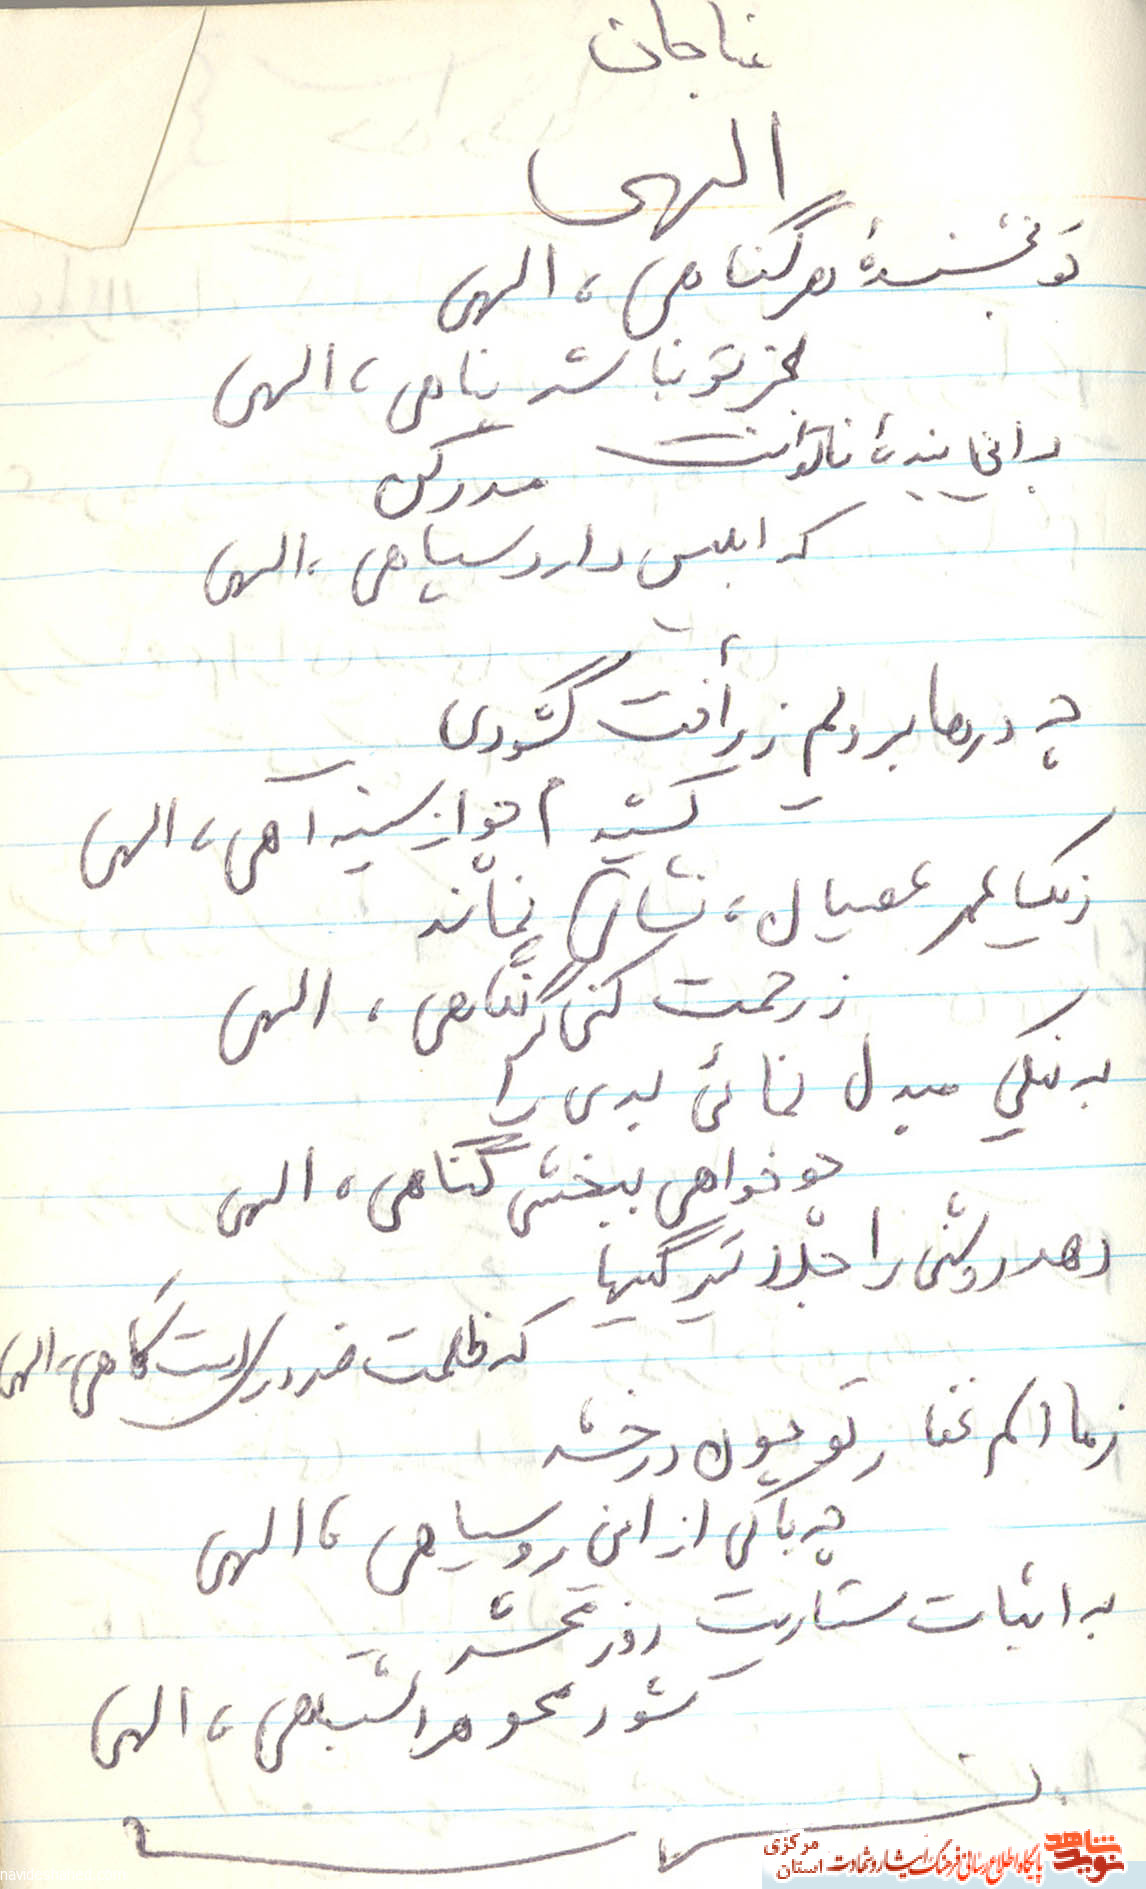 الهی
تو بخشندهٔ هر گناهی، الهی
بجز تو نباشد پناهی، الهی
به این بندهٔ ناتوانت مدد کن
که ابلیس دارد سپاهی، الهی
چه درها بر دلم ز رأفت گشودی
کشیدم چو از سینه آهی، الهی
ز یک عمر عصیان، نشانی نماند
ز رحمت کنی گر نگاهی، الهی
به نیکی مبدل نمائی بدی را
چو خواهی ببخشی گناهی، الهی
دهد روشنی را جلا تیرگیها
که ظلمت ضرور است گاهی، الهی
غفار تو چون درخشد
چه باکی از این روسیاهی، الهی
به اثبات ستاریت روز محشر
شود محو هر اشتباهی، الهی
نوید شاهد
پایگاه اطلاع رسانی فرهنگ ایثار و شهادت
استان مرکزی